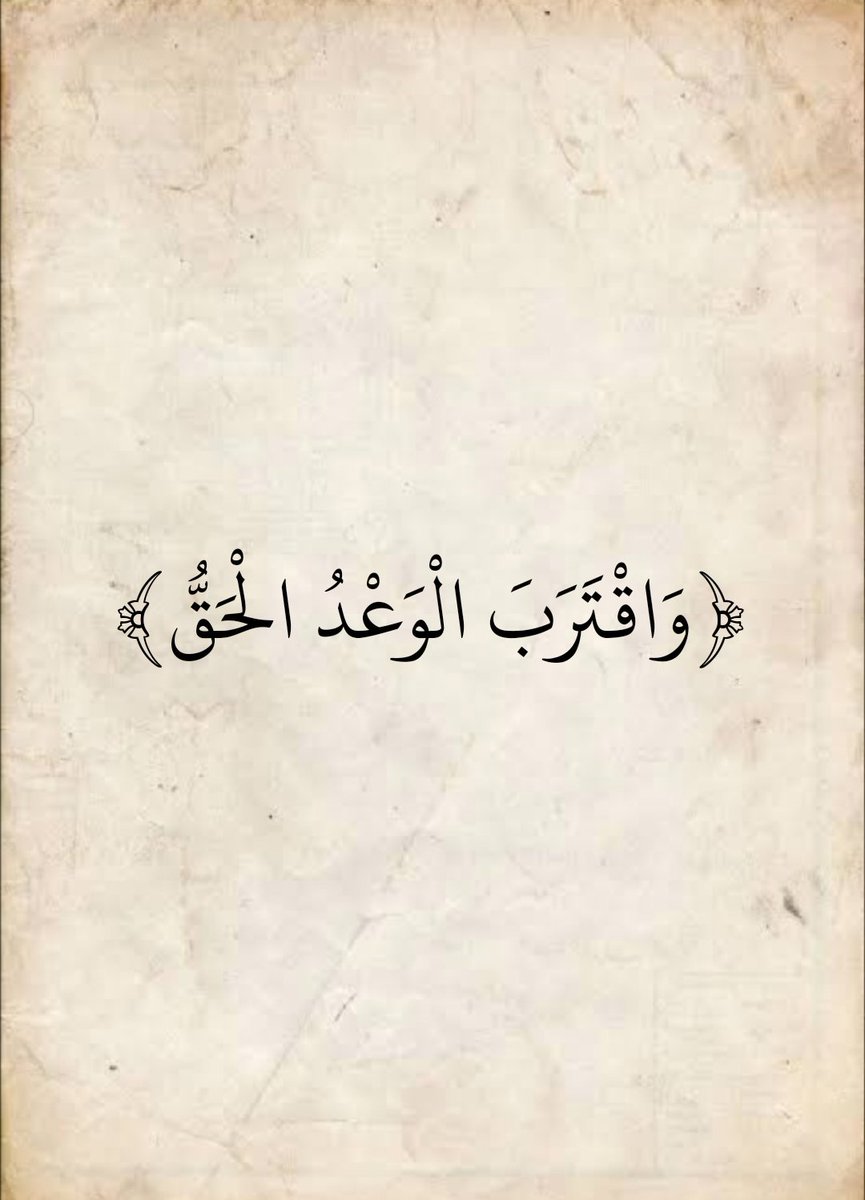 ﴿وَاقْتَرَبَ الْوَعْدُ الْحَقُّ﴾